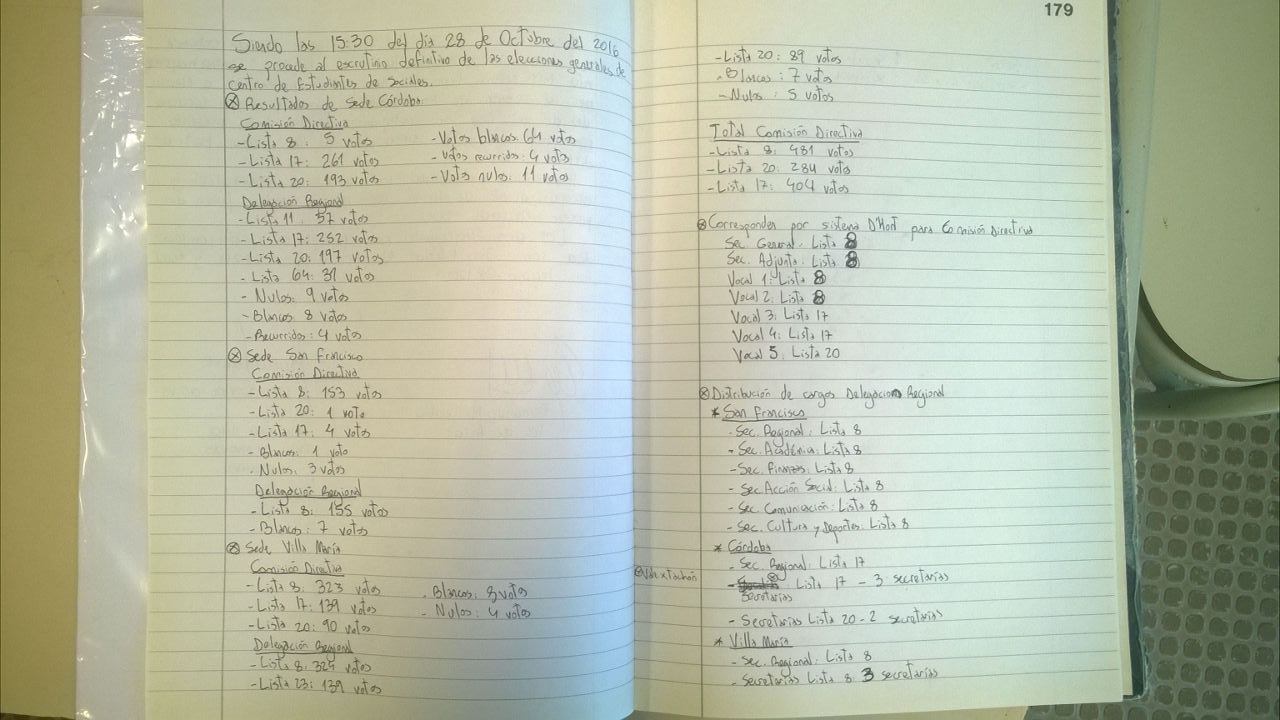 Siendo las 15:30 del día 28 de Octubre del 2016
se procede al escrutinio definitivo de las elecciones generales de
centro de Estudiantes de Sociales.
Resultados de Sede Córdoba
Comisión Directiva
-Lista 8: 5 votos
-Lista 17: 261 votos
-Lista 20: 193 votos
-Votos blancos: 64 votos
-Votos recurridos: 4 votos
-Votos nulos: 11 votos
Delegación Regional
-Lista 11: 57 votos
-Lista 17: 252 votos
-Lista 20: 197 votos
-Lista 64: 31 votos
-Nulos: 9 votos
-Blancos 8 votos
-Recurridos: 4 votos
Sede San Francisco
Comisión Directiva
-Lista 8: 153 votos
-Lista 20: 1 voto
-Lista 17: 4 votos
-Blancos: 1 voto
-Nulos: 3 votos
Delegación Regional
-Lista 8: 155 votos
-Blancos: 7 votos
Sede Villa María
Comisión Directiva
-Lista 8: 323 votos
-Lista 17: 139 votos
-Lista 20: 90 votos
-Blancos: 8 votos
-Nulos: 4 votos
Delegación Regional
-Lista 8: 324 votos
-Lista 23: 139 votos
179
-Lista 20: 89 votos
-Blancos: 7 votos
-Nulos: 5 votos
Total Comisión Directiva
-Lista 8: 481 votos
-Lista 20: 284 votos
-Lista 17: 404 votos
Corresponden por sistema D'Hont para Comisión Directiva
Sec. General: Lista 8
Sec. Adjunto: Lista 8
Vocal 1: Lista 8
Vocal 2: Lista 8
Vocal 3: Lista 17
Vocal 4: Lista 17
Vocal 5: Lista 20
Distribución de cargos Delegación Regional
* San Francisco
-Sec. Regional: Lista 8
-Sec. Académica: Lista 8
-Sec. Finanzas: Lista 8
-Sec. Acción Social: Lista 8
-Sec. Comunicación: Lista 8
-Sec. Cultura y Deportes: Lista 8
* Córdoba
-Sec. Regional: Lista 17
Vale x tachón
Lista 17 - 3 secretarías
Secretarías
-Secretarías Lista 20 - 2 secretarías
* Villa María
-Sec. Regional: Lista 8
-Secretarías Lista 8: 3 secretarías